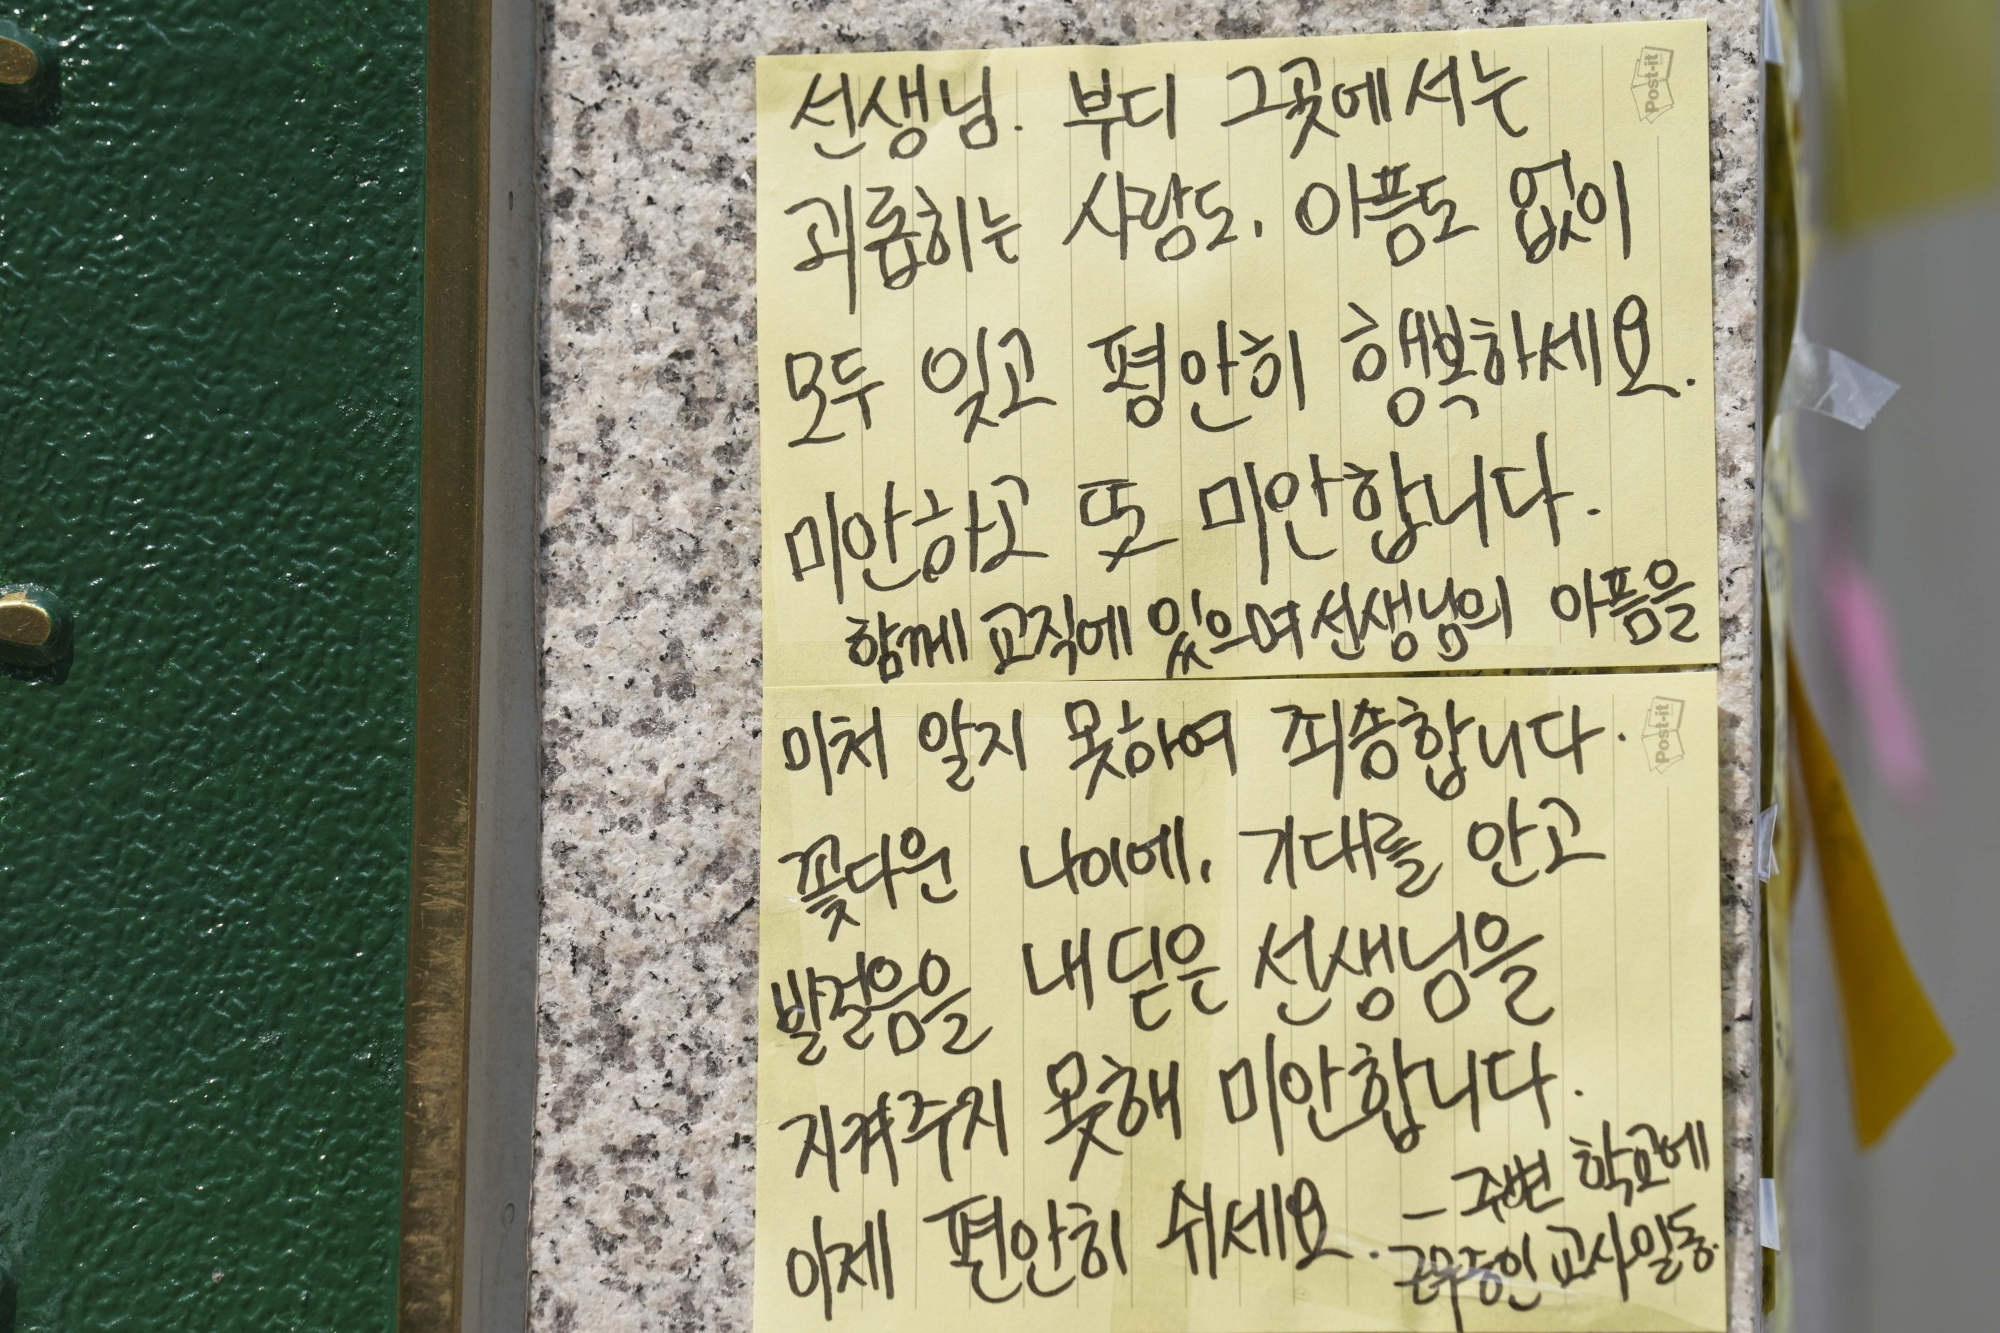 선생님. 부디 그곳에서는
괴롭히는 사람도, 아픔도 없이
모두 잊고 평안히 행복하세요.
미안하고 또 미안합니다.
함께 교직에 있으며 선생님의 아픔을
미처 알지 못하여 죄송합니다.
꽃다운 나이에, 기대를 안고
발걸음을 내딛은 선생님을
지켜주지 못해 미안합니다.
이제 편안히 쉬세요.
- 주변 학교에
근무중인 교사일동.
Post-it
Post-it